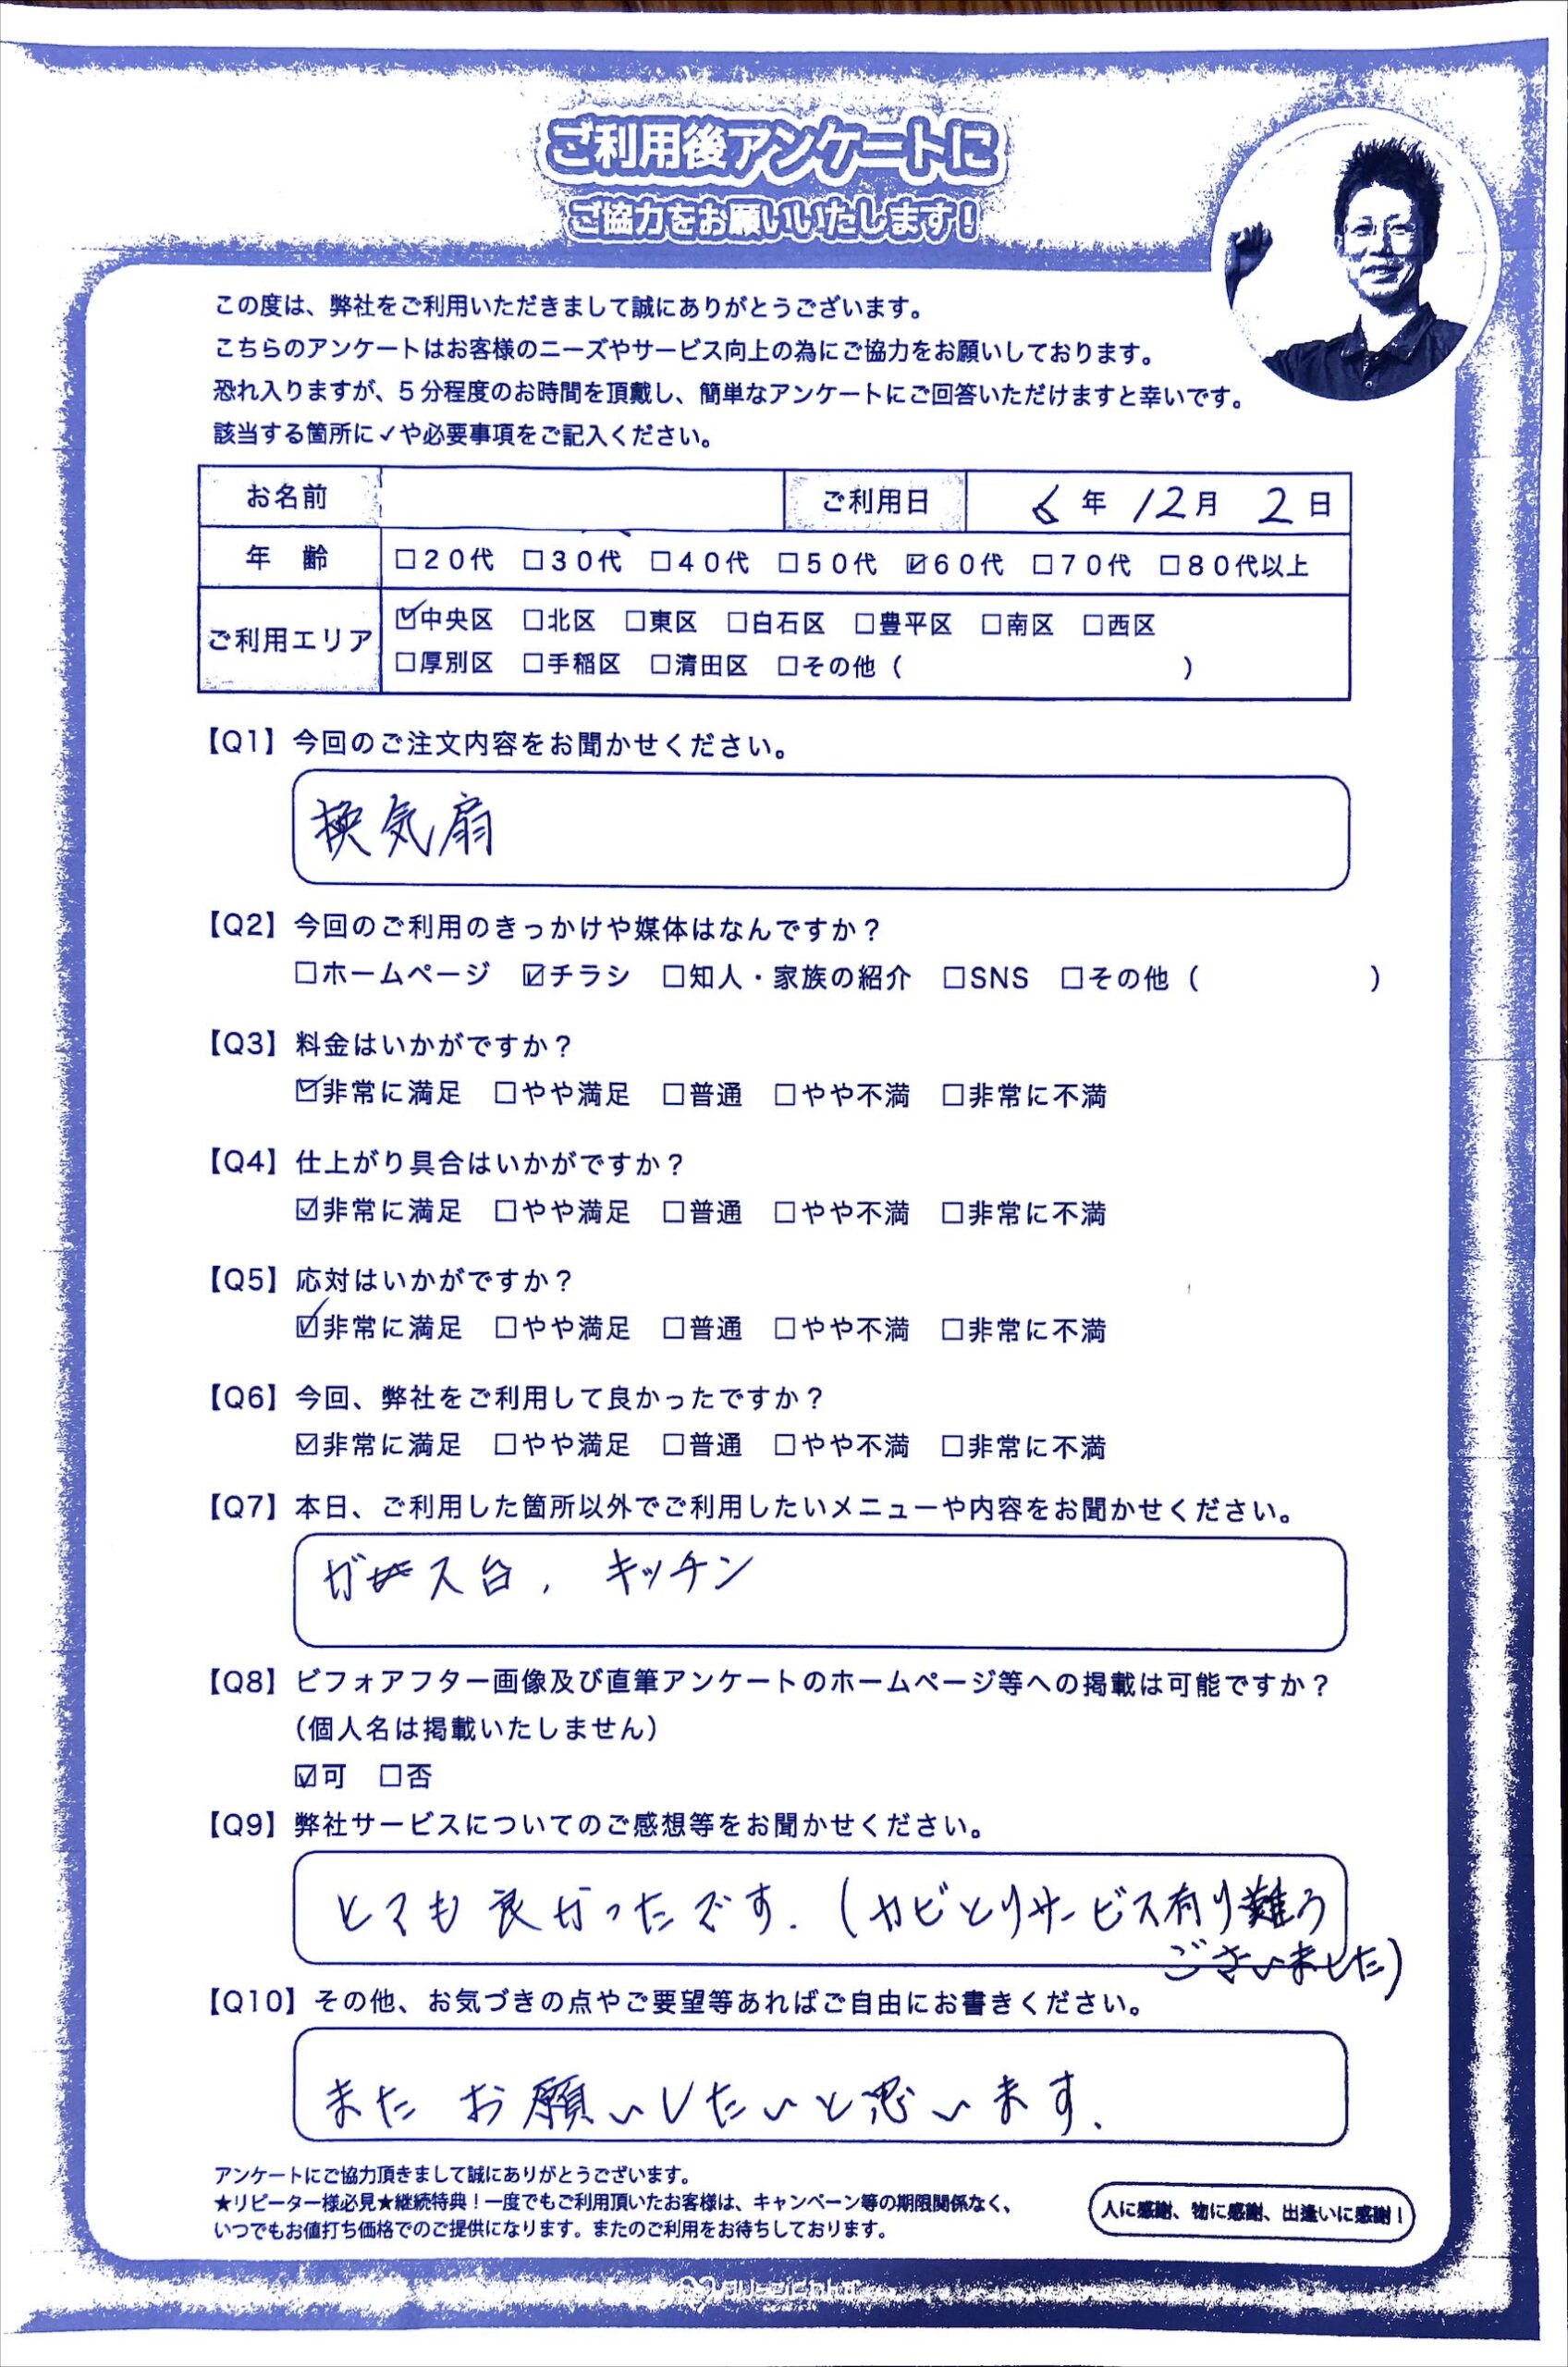 ご利用後アンケートに
ご協力をお願いいたします!
この度は、弊社をご利用いただきまして誠にありがとうございます。
こちらのアンケートはお客様のニーズやサービス向上の為にご協力をお願いしております。
恐れ入りますが、5分程度のお時間を頂戴し、簡単なアンケートにご回答いただけますと幸いです。
該当する箇所に✓や必要事項をご記入ください。
お名前 ご利用日 6年 12月 2日
年 齢 □20代 □30代 □40代 □50代 ☑60代 □70代 □80代以上
ご利用エリア ☑中央区 □北区 □東区 □白石区 □豊平区 □南区 □西区
□厚別区 □手稲区 □清田区 □その他 ( )
【Q1】今回のご注文内容をお聞かせください。
換気扇
【Q2】今回のご利用のきっかけや媒体はなんですか?
□ホームページ ☑チラシ □知人・家族の紹介 □SNS □その他 ( )
【Q3】料金はいかがですか?
☑非常に満足 □やや満足 □普通 □やや不満 □非常に不満
【Q4】仕上がり具合はいかがですか?
☑非常に満足 □やや満足 □普通 □やや不満 □非常に不満
【Q5】応対はいかがですか?
☑非常に満足 □やや満足 □普通 □やや不満 □非常に不満
【Q6】今回、弊社をご利用して良かったですか?
☑非常に満足 □やや満足 □普通 □やや不満 □非常に不満
【Q7】本日、ご利用した箇所以外でご利用したいメニューや内容をお聞かせください。
ガス台、キッチン
【Q8】ビフォアフター画像及び直筆アンケートのホームページ等への掲載は可能ですか?
(個人名は掲載いたしません)
☑可 □否
【Q9】弊社サービスについてのご感想等をお聞かせください。
とても良かったです。(カビとりサービス有り難う
ございました)
【Q10】その他、お気づきの点やご要望等あればご自由にお書きください。
またお願いしたいと思います。
アンケートにご協力頂きまして誠にありがとうございます。
★リピーター様必見★継続特典!一度でもご利用頂いたお客様は、キャンペーン等の期限関係なく、
いつでもお値打ち価格でのご提供になります。またのご利用をお待ちしております。
人に感謝、物に感謝、出逢いに感謝!